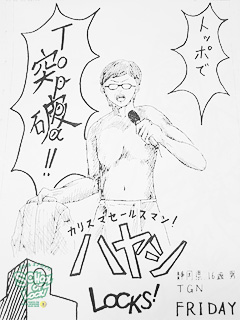 トッポで
突破!!
カリスマセールスマン!
ハヤシ
LOCKS!
静岡県 16歳 男
TGN
FRIDAY